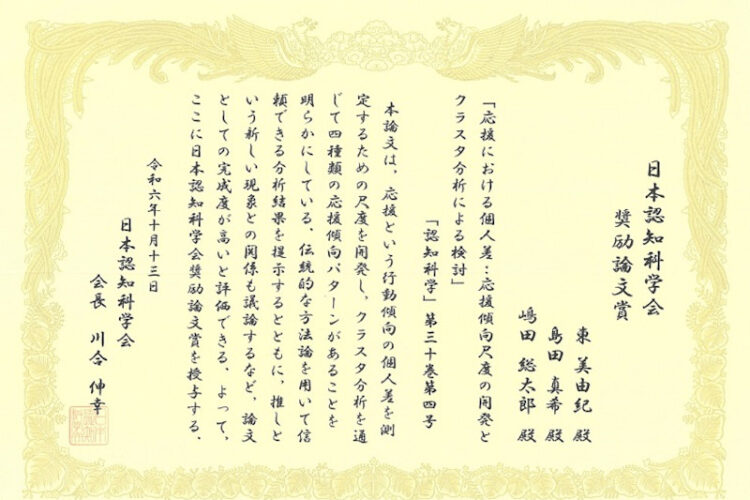 日本認知科学会
奨励論文賞
東 美由紀 殿
島田 真希 殿
嶋田 総太郎 殿
「応援における個人差：応援傾向尺度の開発と
クラスタ分析による検討」
「認知科学」第三十巻第四号
本論文は、応援という行動傾向の個人差を測
定するための尺度を開発し、クラスタ分析を通
じて四種類の応援傾向パターンがあることを
明らかにしている。伝統的な方法論を用いて信
頼できる分析結果を提示するとともに、推しと
いう新しい現象との関係も議論するなど、論文
としての完成度が高いと評価できる。よって、
ここに日本認知科学会奨励論文賞を授与する。
令和六年十月十三日
日本認知科学会
会長 川合 伸幸